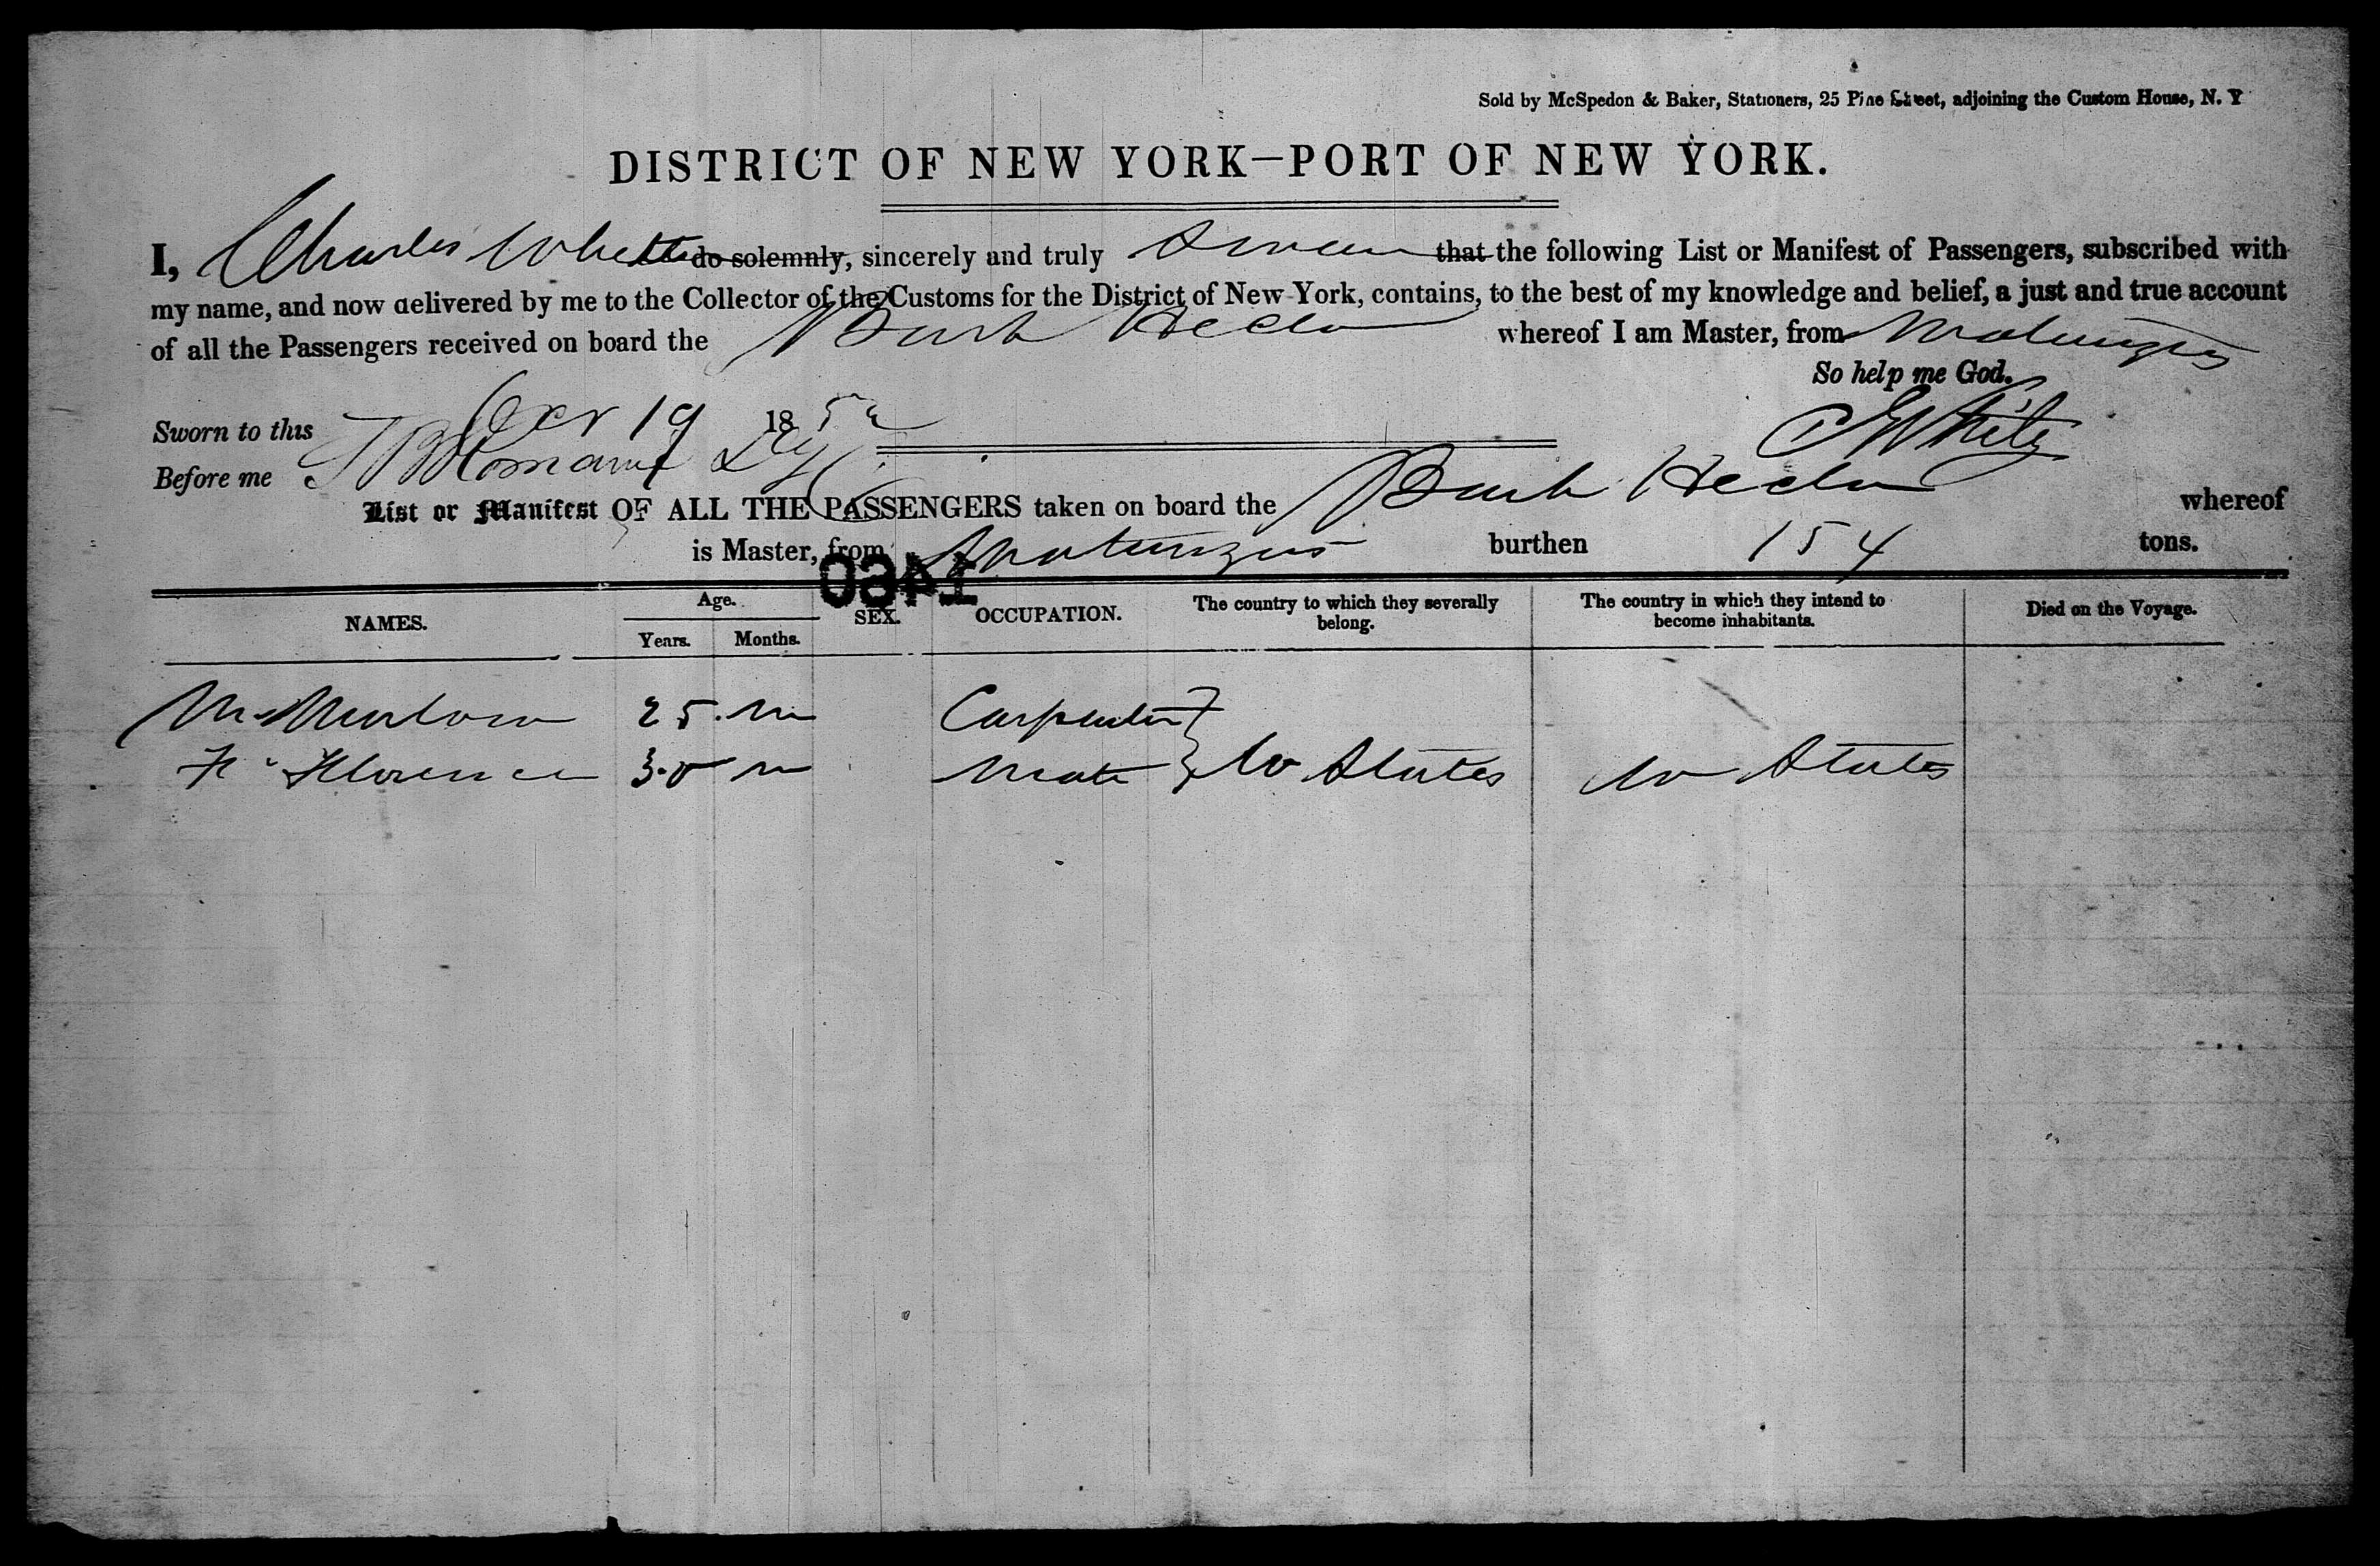 Sold by McSpedon & Baker, Stationers, 25 Pine Street, adjoining the Custom House, N. Y
DISTRICT OF NEW YORK—PORT OF NEW YORK.
I, Charles White do solemnly, sincerely and truly Swear that the following List or Manifest of Passengers, subscribed with
my name, and now delivered by me to the Collector of the Customs for the District of New-York, contains, to the best of my knowledge and belief, a just and true account
of all the Passengers received on board the Bark Hecla whereof I am Master, from Matanzas
So help me God.
Sworn to this 19 185 C White
Before me
List or Manifest OF ALL THE PASSENGERS taken on board the Bark Hecla whereof
is Master, from Matanzas burthen 154 tons.
NAMES. Age. SEX. OCCUPATION. The country to which they severally belong. The country in which they intend to become inhabitants. Died on the Voyage.
Years. Months.
25 m Carpenter
F Florence 30 m Mate U States U States